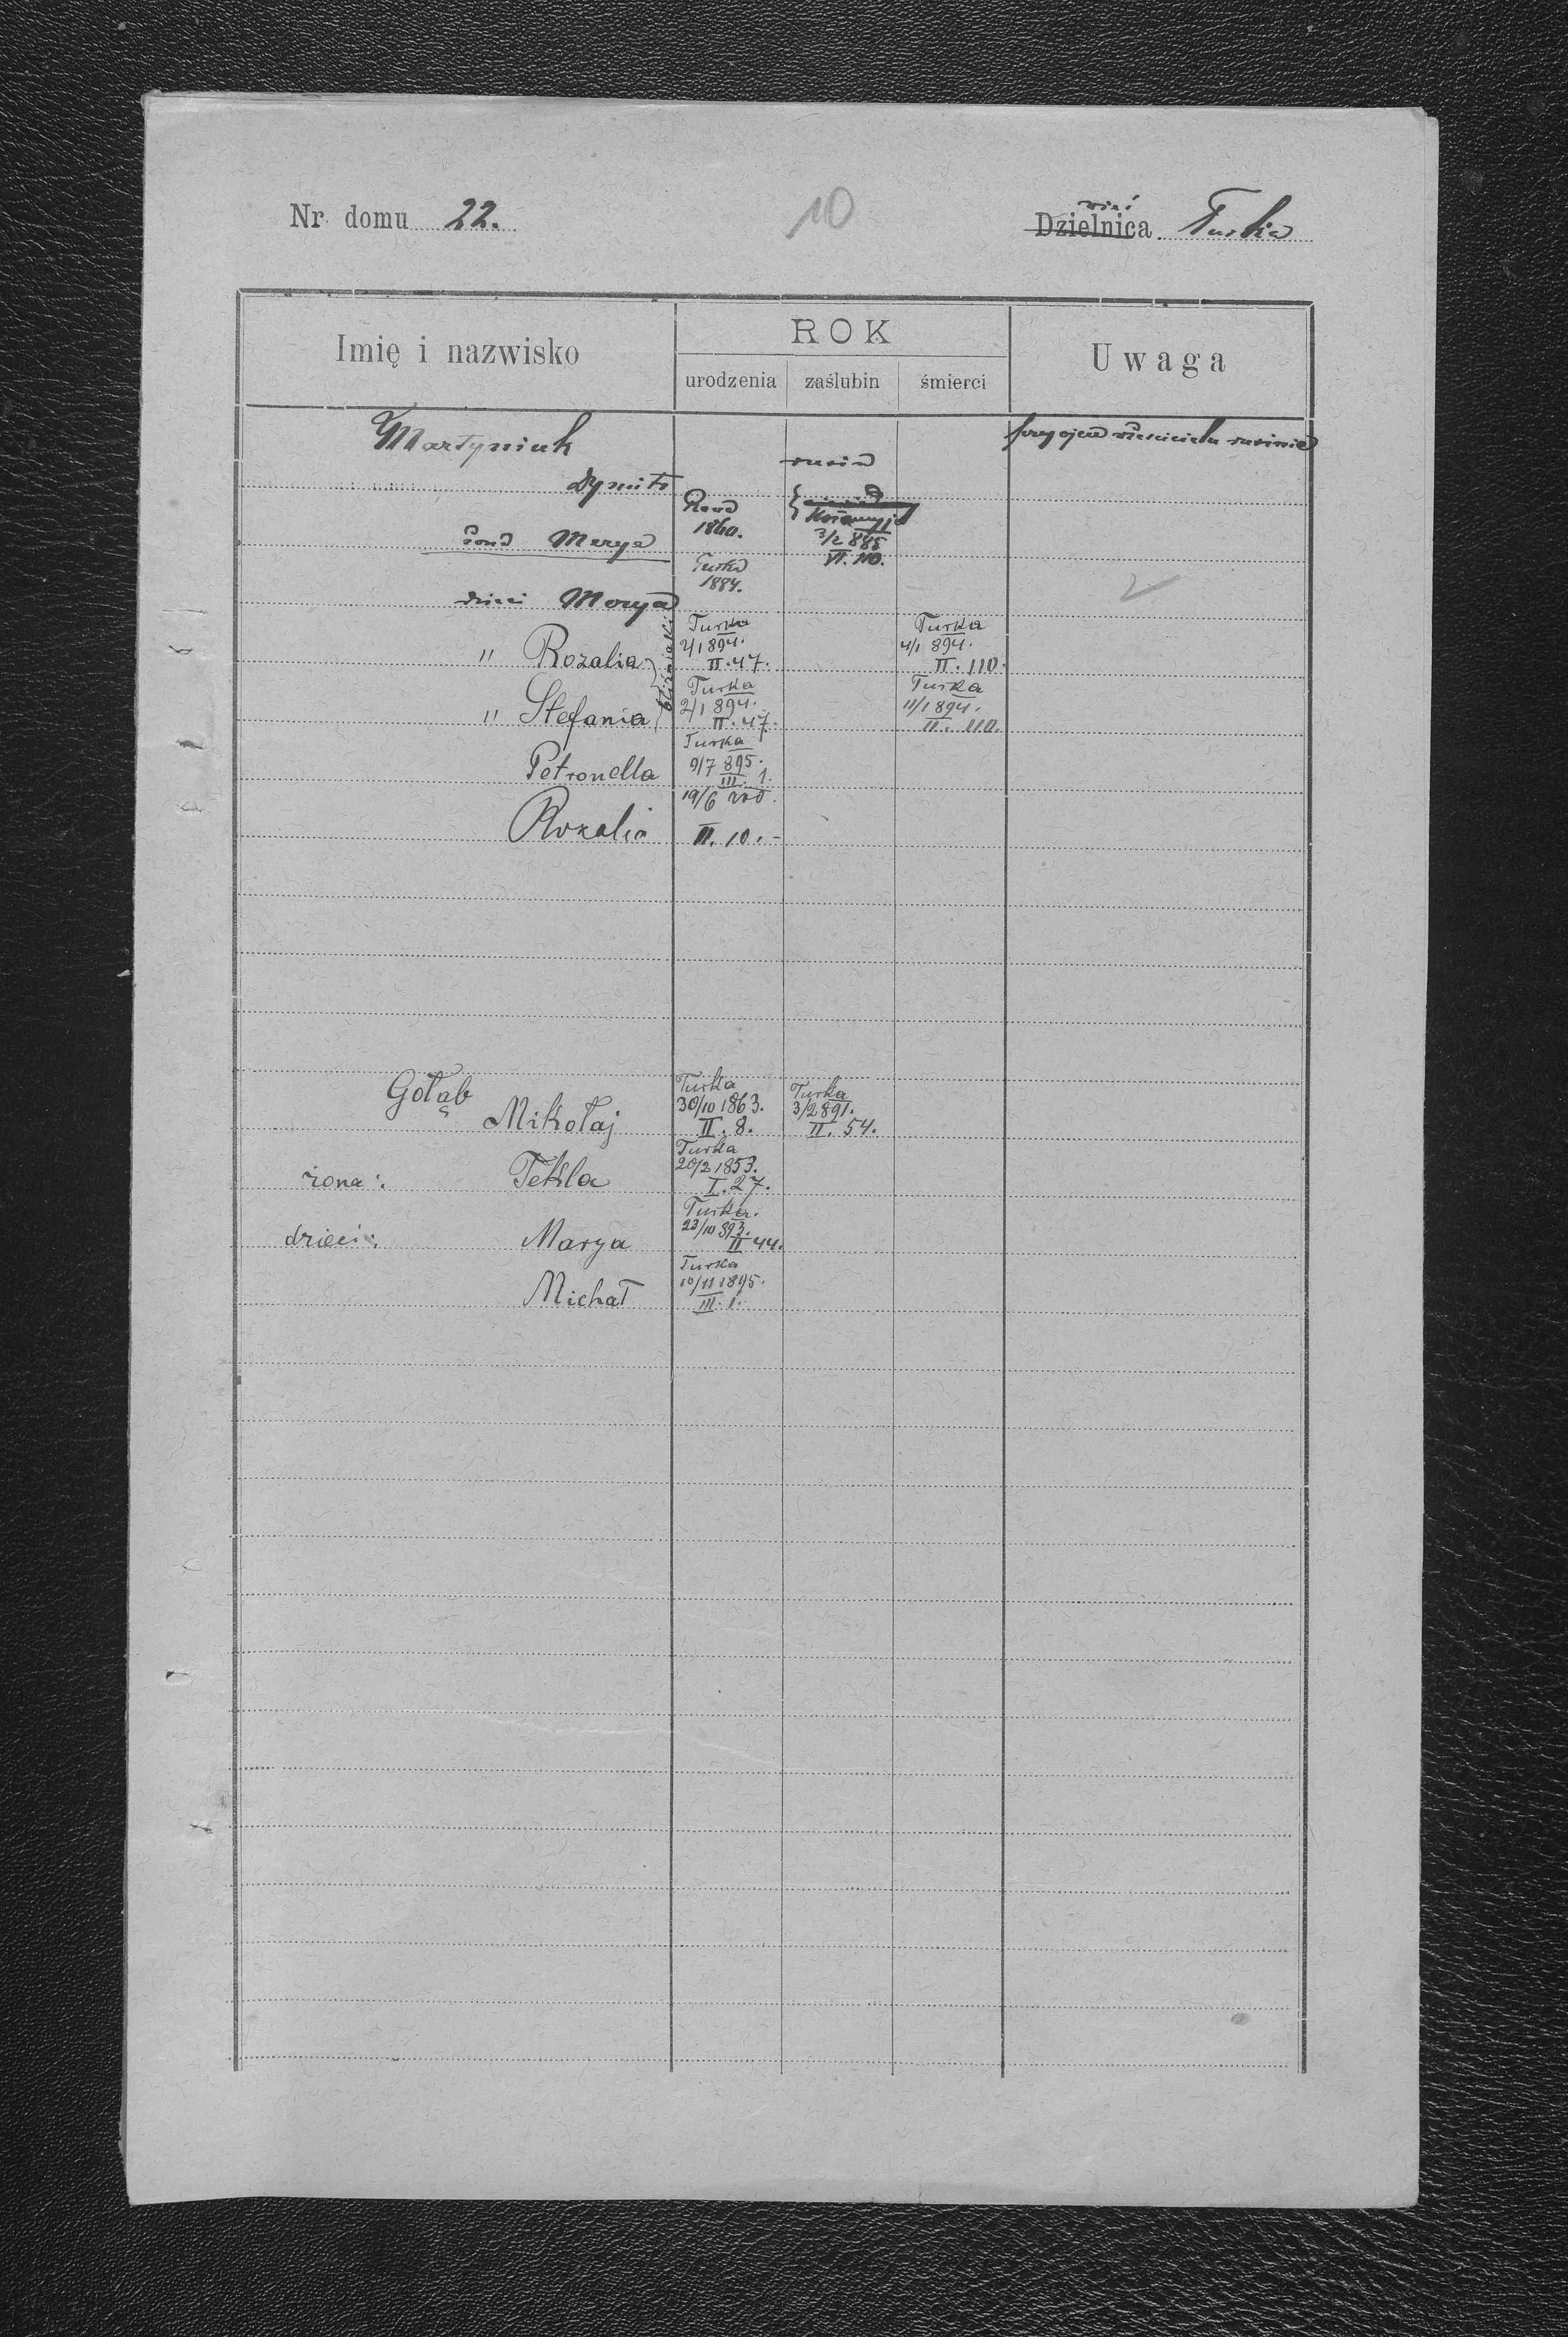 Nr. domu 22.
10
wieś
Dzielnica Turka
Imię i nazwisko
ROK
urodzenia zaślubin śmierci
Uwaga
Martyniuk
przy ojcu
rusin
Dymitr
żona Marya
1860.
Kołomyja
3/2 885
VI. 110.
dzieci Marya
Turka
1884.
" Rozalia
bliźniaki
Turka
2/1 894.
II. 47.
Turka
4/1 894.
II. 110.
" Stefania
Turka
2/1 894.
II. 47.
Turka
11/1 894.
II. 110.
Petronella
Turka
9/7 895.
III. 1.
Rozalia
19/6
III. 10.-
Gołąb
Mikołaj
Turka
30/10 1863.
II. 8.
Turka
3/2 891.
II. 54.
żona: Tekla
Turka
20/2 1853.
I. 27.
dzieci: Marya
Turka.
23/10 893.
II 44.
Michał
Turka
10/11 1895.
III. 1.